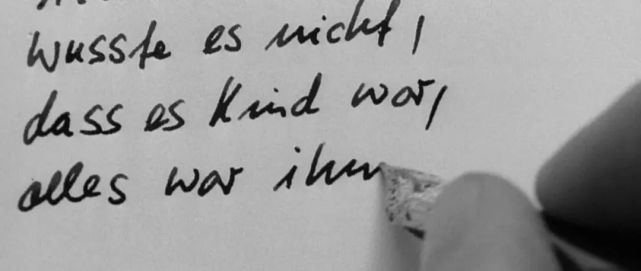 wusste es nicht,
dass es Kind war,
alles war ihm